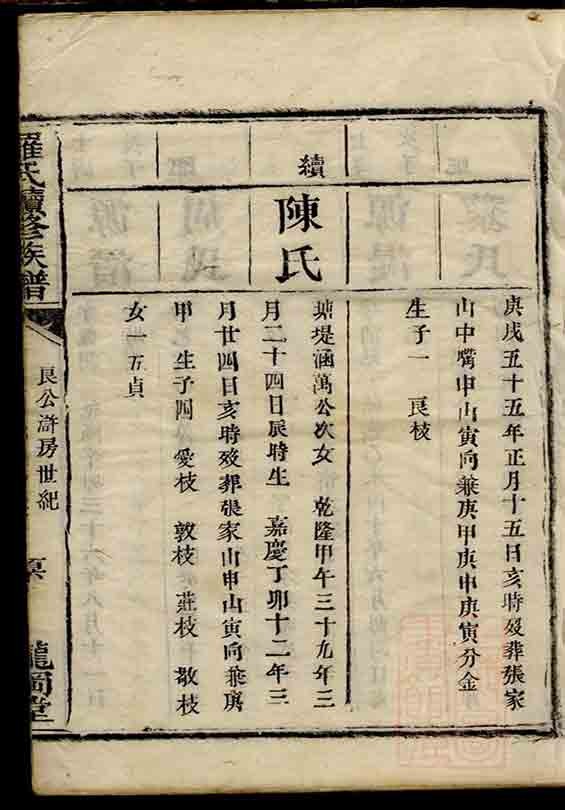 庚戌五十五年正月十五日亥時歿葬張家
山中嘴申山寅向兼庚甲庚申庚寅分金
生子一 良枝
續
陳氏
塘堤涵萬公次女 乾隆甲午三十九年三
月二十四日辰時生 嘉慶丁卯十二年三
月廿四日亥時歿葬張家山申山寅向兼庚
甲 生子四 愛枝 敦枝 莊枝 敬枝
女一五貞
羅氏續修族譜
良公滸房世紀
龍岡堂